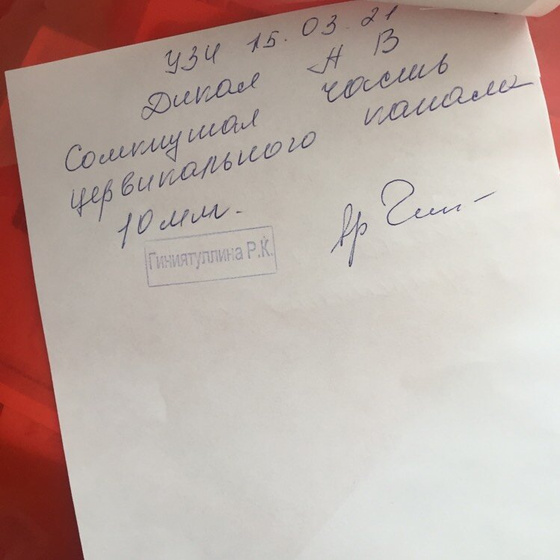 УЗИ 15.03.21
Дикая Н В
Сомкнутая часть
цервикального канала
10 мм.
вр
Гиниятуллина Р.К.